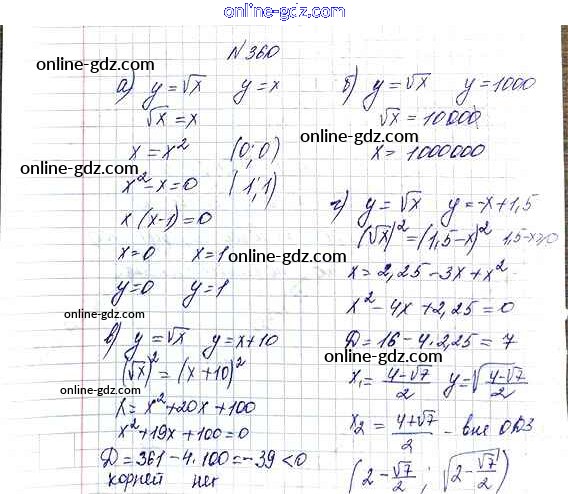 online-gdz.com
N 360
online-gdz.com
online-gdz.com
а) y = √x y = x
√x = x
x = x² (0; 0)
online-gdz.com
x² - x = 0 (1; 1)
x (x-1) = 0
x = 0 x = 1
online-gdz.com
y = 0 y = 1
в) y = √x y = x + 10
(√x)² = (x + 10)²
online-gdz.com
x = x² + 20x + 100
x² + 19x + 100 = 0
D = 361 - 4·100 = -39 < 0
корней нет
б) y = √x y = 1000
√x = 10000
online-gdz.com
x = 1000000
г) y = √x y = -x + 1,5
(√x)² = (1,5 - x)² 1,5 - x ≥ 0
x = 2,25 - 3x + x²
x² - 4x + 2,25 = 0
D = 16 - 4·2,25 = 7
online-gdz.com
x₁ = (4-√7)/2 y = √((4-√7)/2)
x₂ = (4+√7)/2 - вне ОДЗ
online-gdz.com
(2 - √7/2 ; √(2 - √7/2))